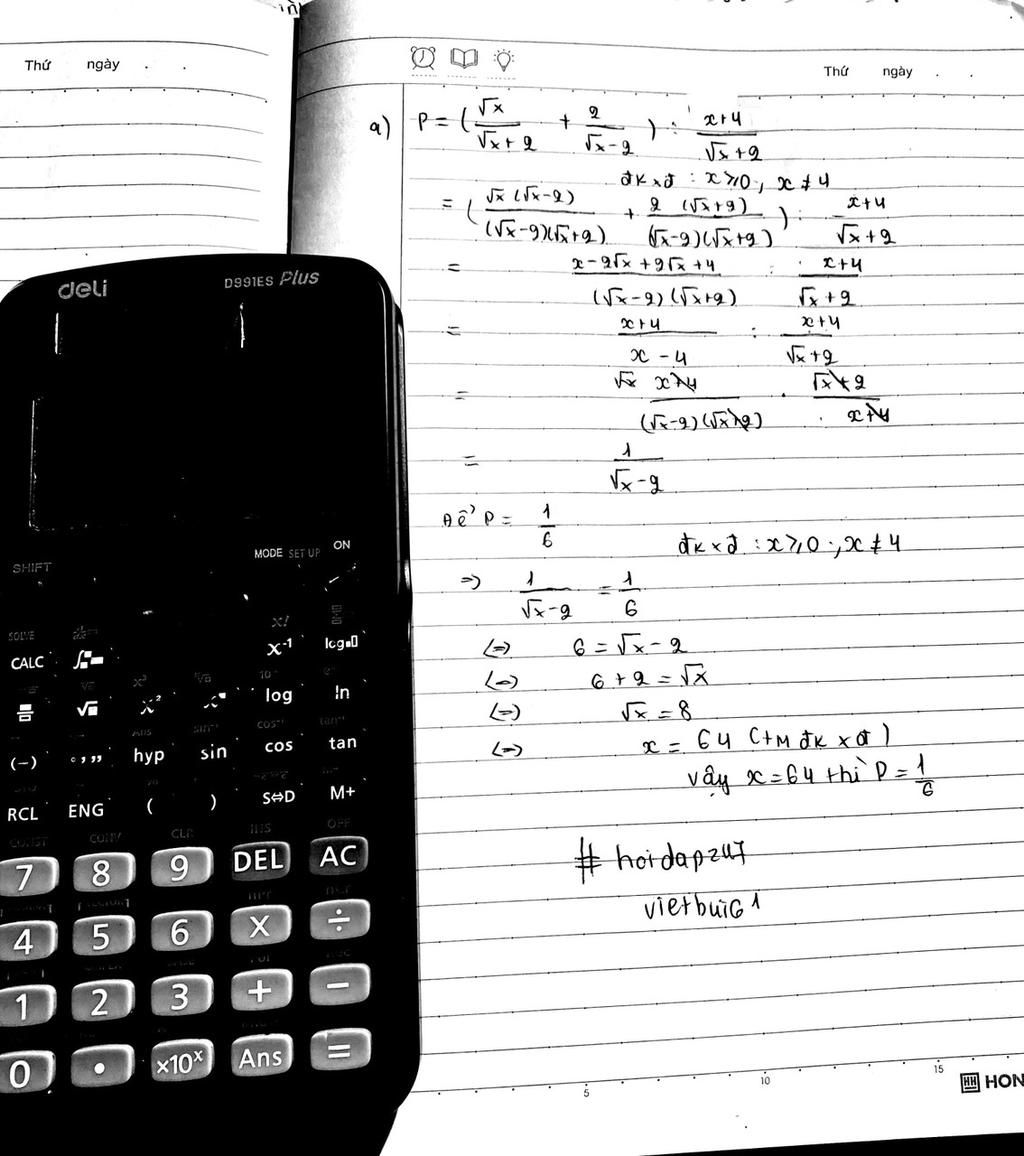 Thứ ngày . .
Thứ ngày . .
a) P = ( √x / (√x + 2) + 2 / (√x - 2) ) : (x+4) / (√x + 2)
đkxđ : x ≥ 0 ; x ≠ 4
= ( √x (√x - 2) / (√x - 2)(√x + 2) + 2 (√x + 2) / (√x - 2)(√x + 2) ) : (x+4) / (√x + 2)
= (x - 2√x + 2√x + 4) / (√x - 2)(√x + 2) : (x+4) / (√x + 2)
= (x+4) / (x - 4) : (x+4) / (√x + 2)
= (x+4) / (√x - 2)(√x + 2) . (√x + 2) / (x+4)
= 1 / (√x - 2)
Để P = 1/6 đkxđ : x ≥ 0 ; x ≠ 4
=> 1 / (√x - 2) = 1/6
<=> 6 = √x - 2
<=> 6 + 2 = √x
<=> √x = 8
<=> x = 64 (TM đk xđ)
vậy x = 64 thì P = 1/6
# hoidap247
vietbui61
5 10 15
HH HON
deli D991ES Plus
SHIFT MODE SET UP ON
SOLVE x!
CALC x⁻¹ log
√ x² log ln
(−) °,,, hyp sin cos tan
RCL ENG ( ) S⇔D M+
CONST CONV CLR INS OFF
7 8 9 DEL AC
4 5 6 X ÷
1 2 3 + −
0 . ×10ˣ Ans =